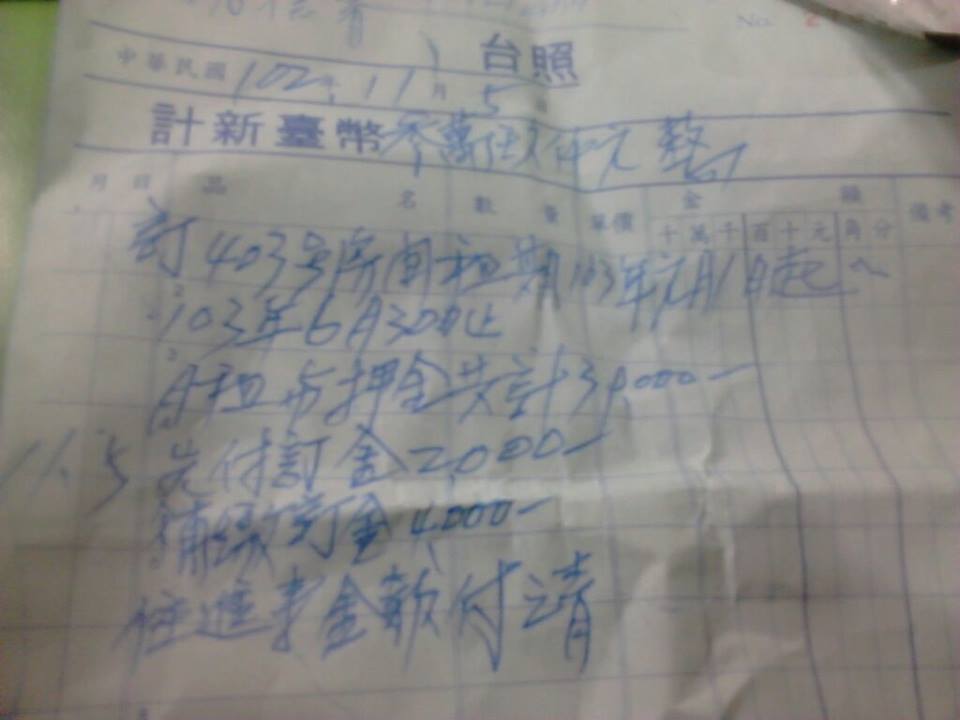 No.
台照
中華民國 102年 11月 5
計新臺幣 元整
月 日 品 名 數 量 單價 金 額 備考
十萬千百十元角分
訂403号房间租期103年元月1日起~
103年6月30日止
月租与押金共計34000-
11.5 先付訂金2,000-
補繳訂金4,000-
住進事金款付清